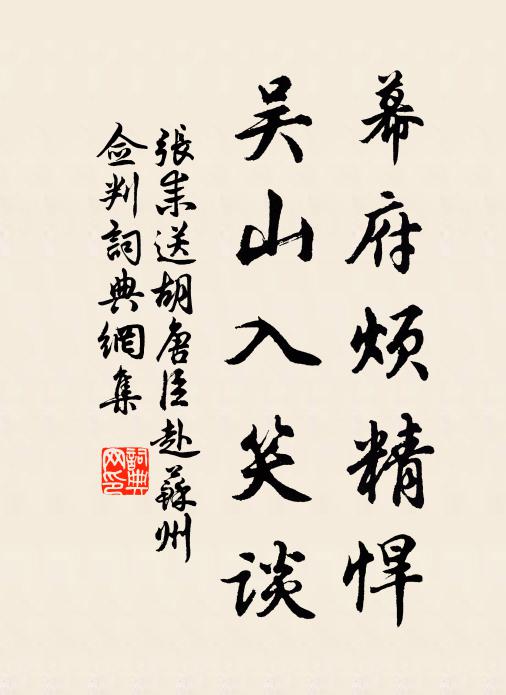 幕府烦精悍
吴山入笑谈
張耒送胡唐臣赴蘇州
佥判詞典網集
詞典网印